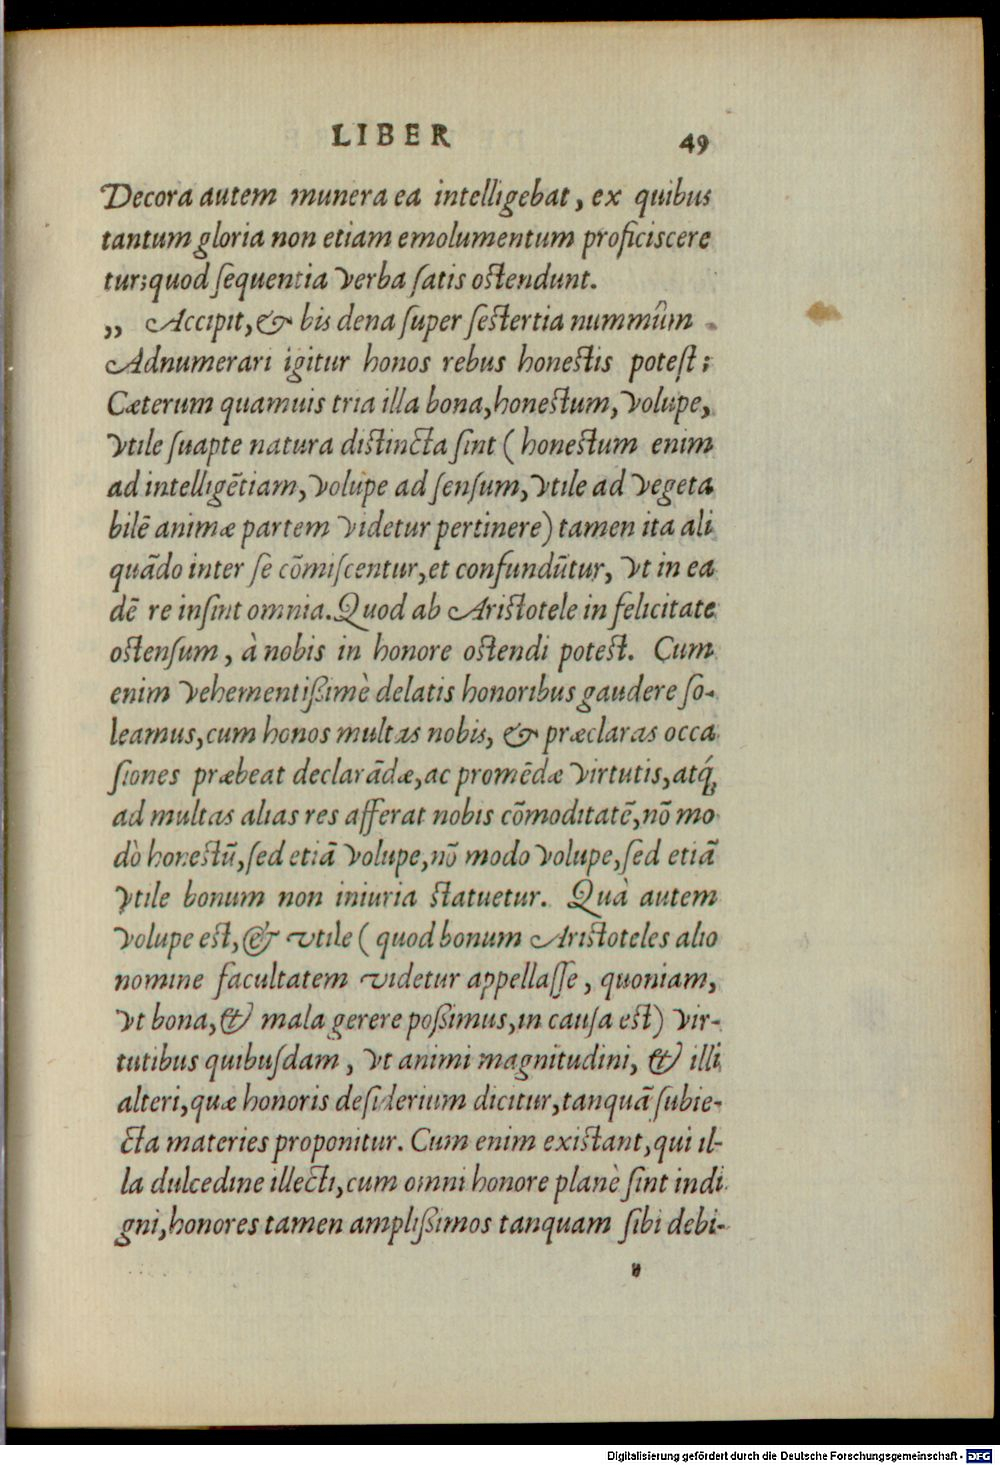 LIBER 49
Decora autem munera ea intelligebat, ex quibus
tantum gloria non etiam emolumentum proficiscere
tur; quod ſequentia verba ſatis oſtendunt.
„ Accipit, & bis dena ſuper ſeſtertia nummûm
Adnumerari igitur honos rebus honeſtis poteſt:
Cæterum quamuis tria illa bona, honeſtum, volupe,
vtile ſuapte natura diſtincta ſint (honeſtum enim
ad intelligẽtiam, volupe ad ſenſum, vtile ad vegeta
bilẽ animæ partem videtur pertinere) tamen ita ali
quãdo inter ſe cõmiſcentur, et confundũtur, vt in ea
dẽ re inſint omnia. Quod ab Ariſtotele in felicitate
oſtenſum, à nobis in honore oſtendi poteſt. Cum
enim vehementißimè delatis honoribus gaudere ſo-
leamus, cum honos multas nobis, & præclaras occa
ſiones præbeat declarãdæ, ac promẽdæ virtutis, atq́;
ad multas alias res afferat nobis cõmoditatẽ, nõ mo
dò honeſtũ, ſed etiã volupe, nõ modo volupe, ſed etiã
vtile bonum non iniuria ſtatuetur. Quà autem
volupe eſt, & vtile (quod bonum Ariſtoteles alio
nomine facultatem videtur appellaſſe, quoniam,
vt bona, & mala gerere poßimus, in cauſa eſt) vir-
tutibus quibuſdam, vt animi magnitudini, & illi
alteri, quæ honoris deſiderium dicitur, tanquã ſubie-
cta materies proponitur. Cum enim exiſtant, qui il-
la dulcedine illecti, cum omni honore planè ſint indi
gni, honores tamen amplißimos tanquam ſibi debi-
Digitalisierung gefördert durch die Deutsche Forschungsgemeinschaft - DFG